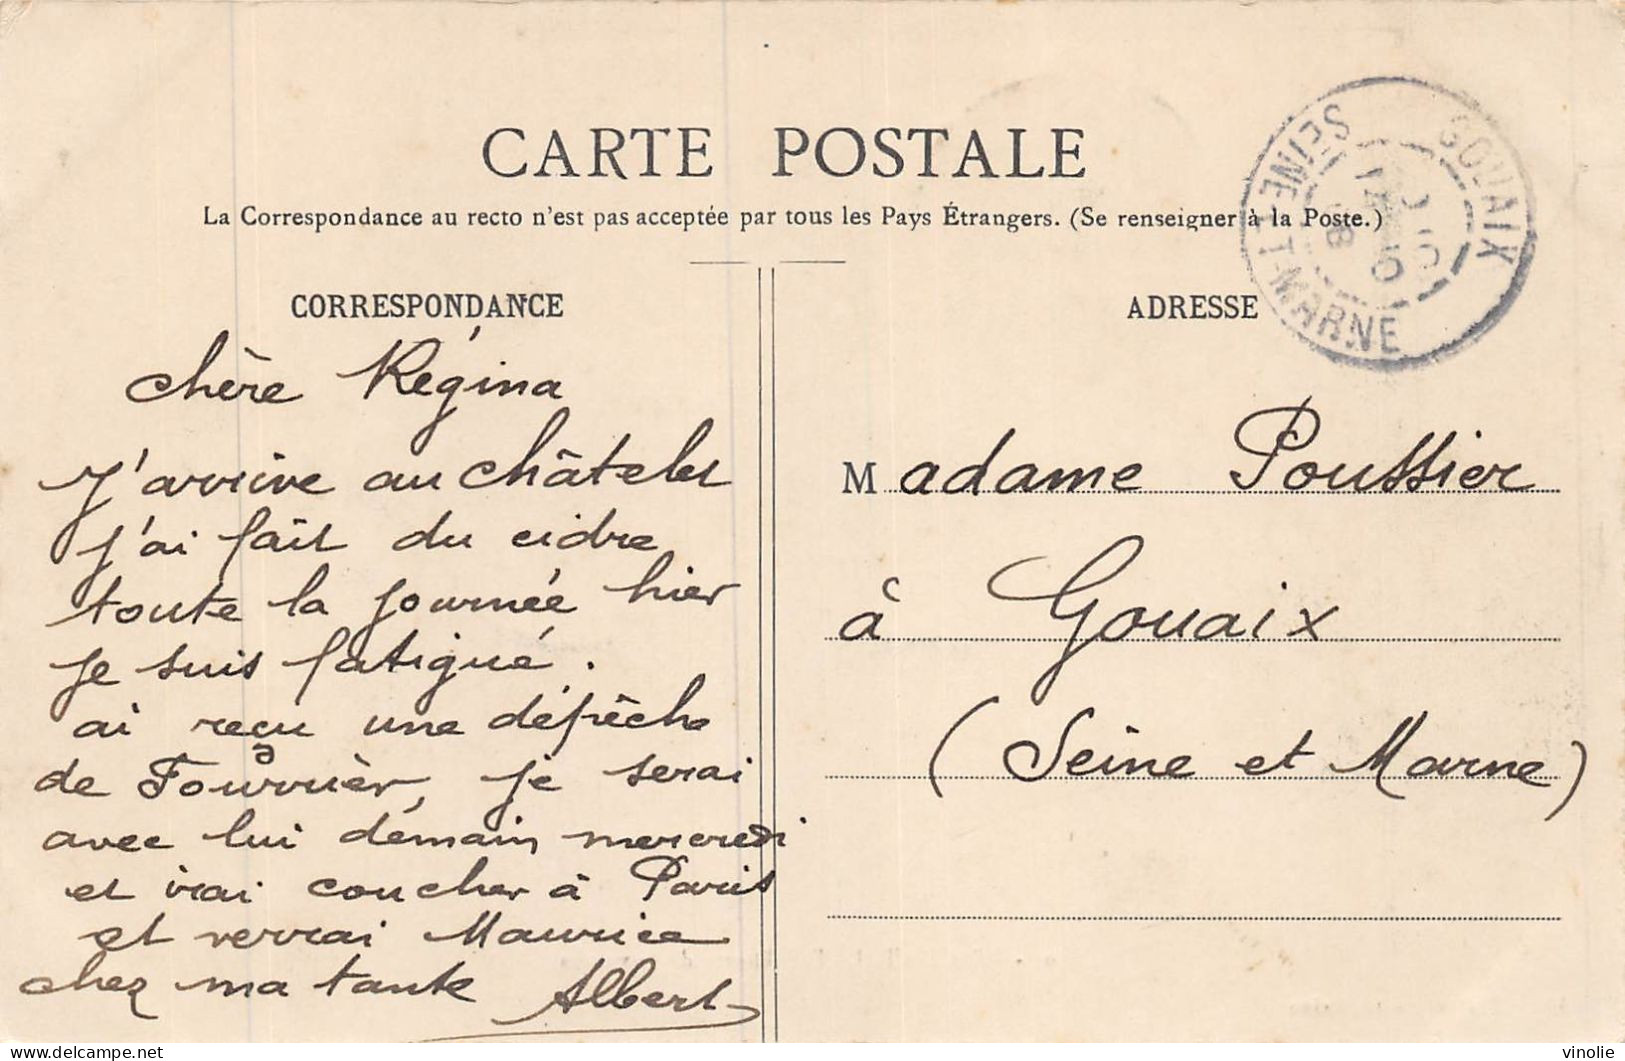 CARTE POSTALE
La Correspondance au recto n'est pas acceptée par tous les Pays Étrangers. (Se renseigner à la Poste.)
CORRESPONDANCE
chère Régina
J'arrive au châtelet
j'ai fait du cidre
toute la journée hier
je suis fatigué.
ai reçu une dépêche
de Fourrier, je serai
avec lui démain mercredi
et irai coucher à Paris
et verrai Maurice
chez ma tante Albert
ADRESSE
Madame Poussier
à Gouaix
(Seine et Marne)
GOUAIX
SEINE-ET-MARNE
vinolie